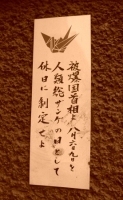 被爆国首相よ八月六・九日を
人類総ザンゲの日として
休日に制定せよ